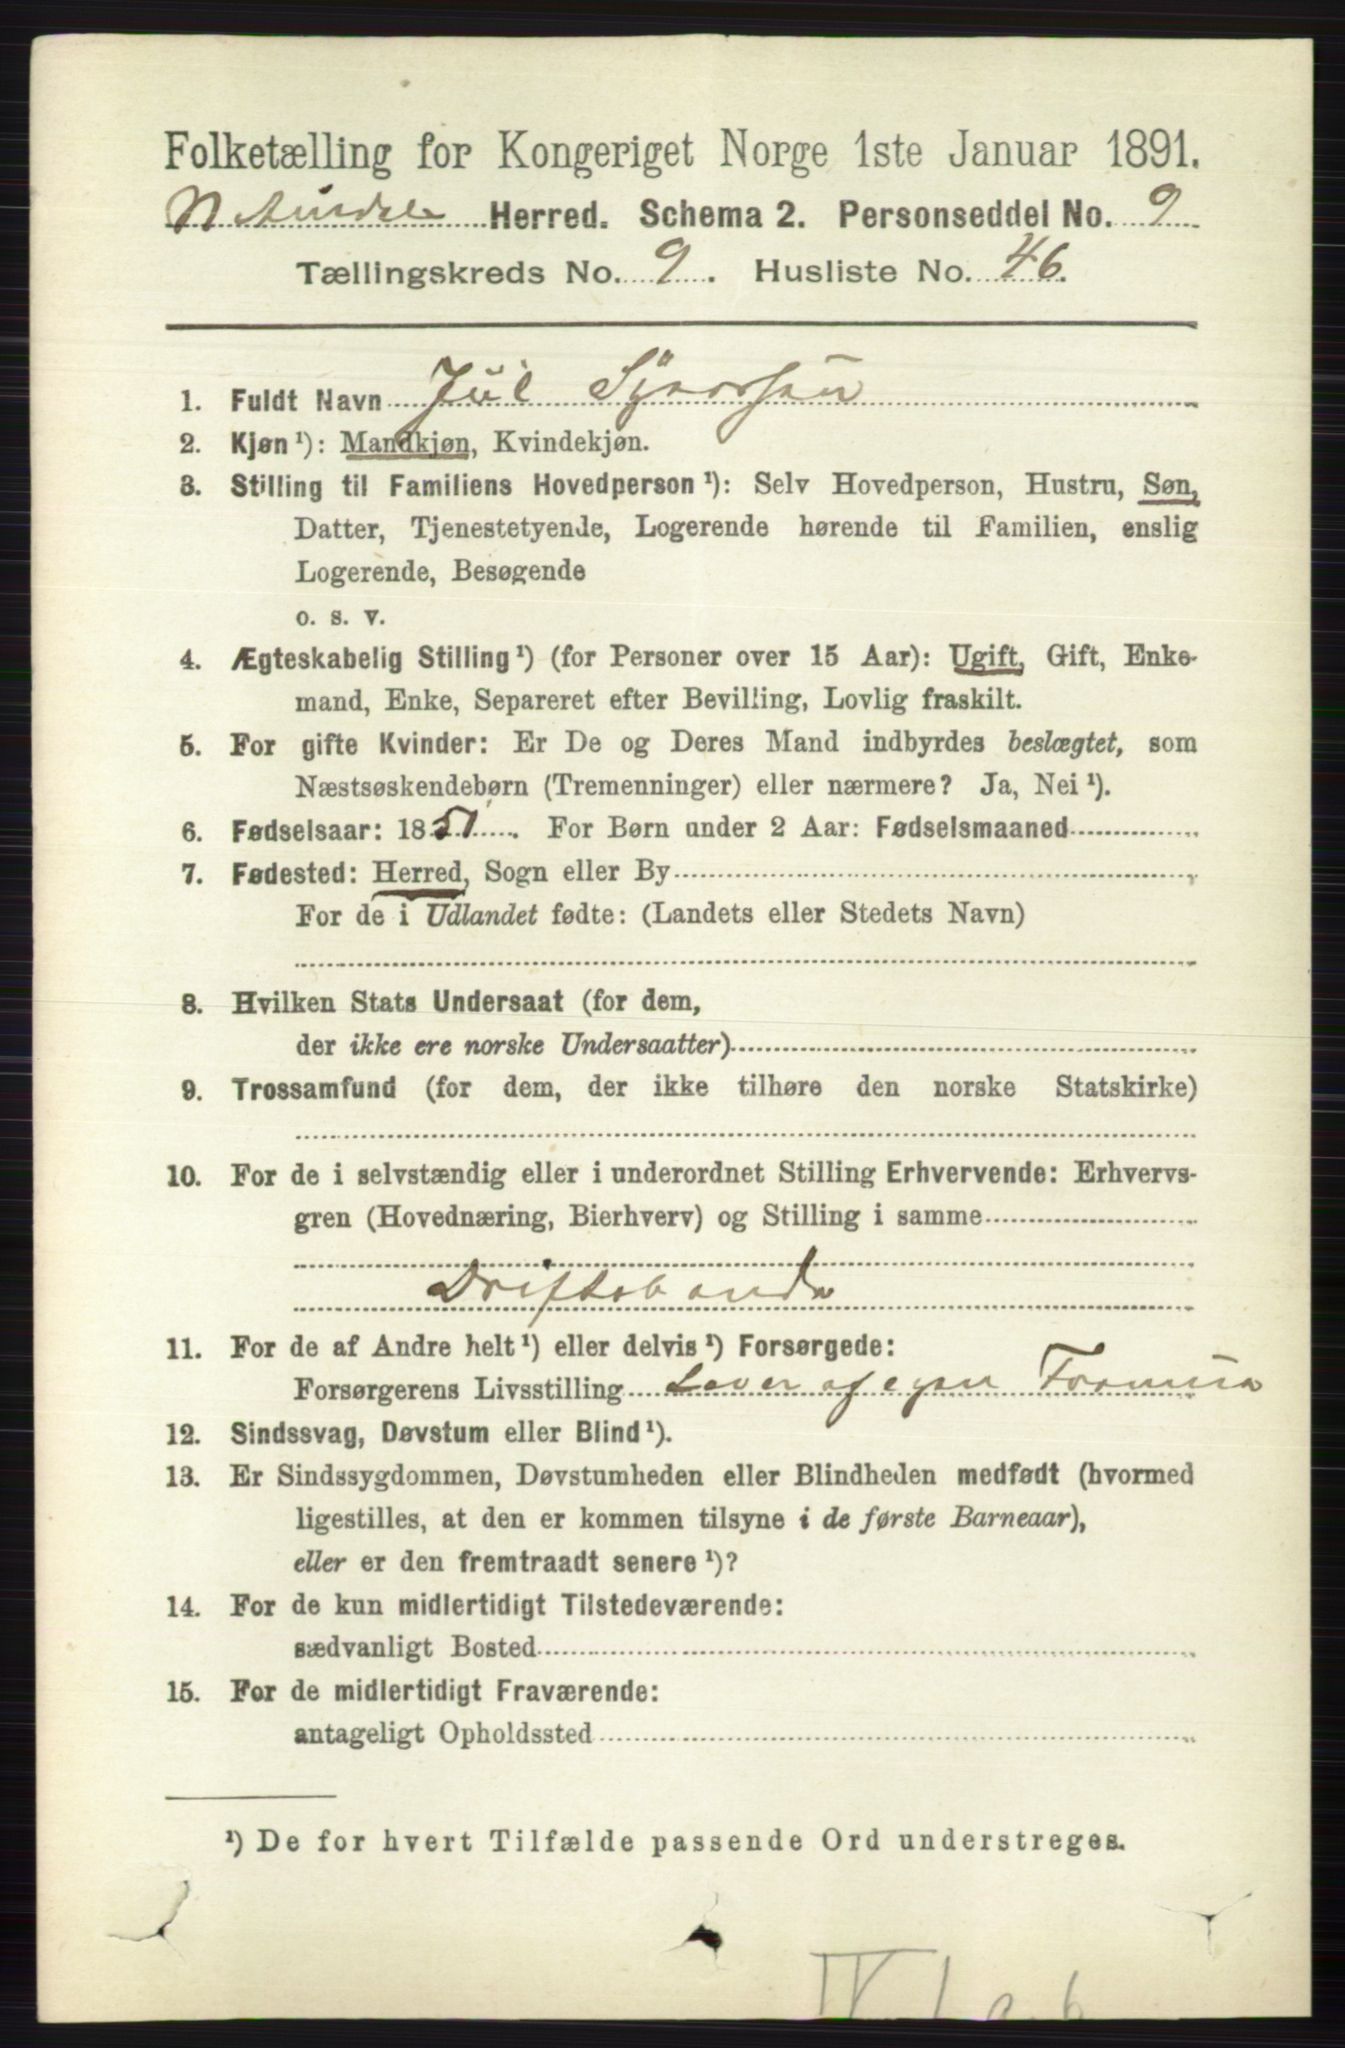 Folketælling for Kongeriget Norge 1ste Januar 1891.
N. Aurdal Herred. Schema 2. Personseddel No. 9
Tællingskreds No. 9. Husliste No. 46.
1. Fuldt Navn Jul Syversen
2. Kjøn ¹): Mandkjøn, Kvindekjøn.
3. Stilling til Familiens Hovedperson ¹): Selv Hovedperson, Hustru, Søn,
Datter, Tjenestetyende, Logerende hørende til Familien, enslig
Logerende, Besøgende
o. s. v.
4. Ægteskabelig Stilling ¹) (for Personer over 15 Aar): Ugift, Gift, Enke-
mand, Enke, Separeret efter Bevilling, Lovlig fraskilt.
5. For gifte Kvinder: Er De og Deres Mand indbyrdes beslægtet, som
Næstsøskendebørn (Tremenninger) eller nærmere? Ja, Nei ¹).
6. Fødselsaar: 1851. For Børn under 2 Aar: Fødselsmaaned
7. Fødested: Herred, Sogn eller By
For de i Udlandet fødte: (Landets eller Stedets Navn)
8. Hvilken Stats Undersaat (for dem,
der ikke ere norske Undersaatter)
9. Trossamfund (for dem, der ikke tilhøre den norske Statskirke)
10. For de i selvstændig eller i underordnet Stilling Erhvervende: Erhvervs-
gren (Hovednæring, Bierhverv) og Stilling i samme
Driftebonde
11. For de af Andre helt ¹) eller delvis ¹) Forsørgede:
Forsørgerens Livsstilling Lever af egen Formue
12. Sindssvag, Døvstum eller Blind ¹).
13. Er Sindssygdommen, Døvstumheden eller Blindheden medfødt (hvormed
ligestilles, at den er kommen tilsyne i de første Barneaar),
eller er den fremtraadt senere ¹)?
14. For de kun midlertidigt Tilstedeværende:
sædvanligt Bosted
15. For de midlertidigt Fraværende:
antageligt Opholdssted
¹) De for hvert Tilfælde passende Ord understreges.